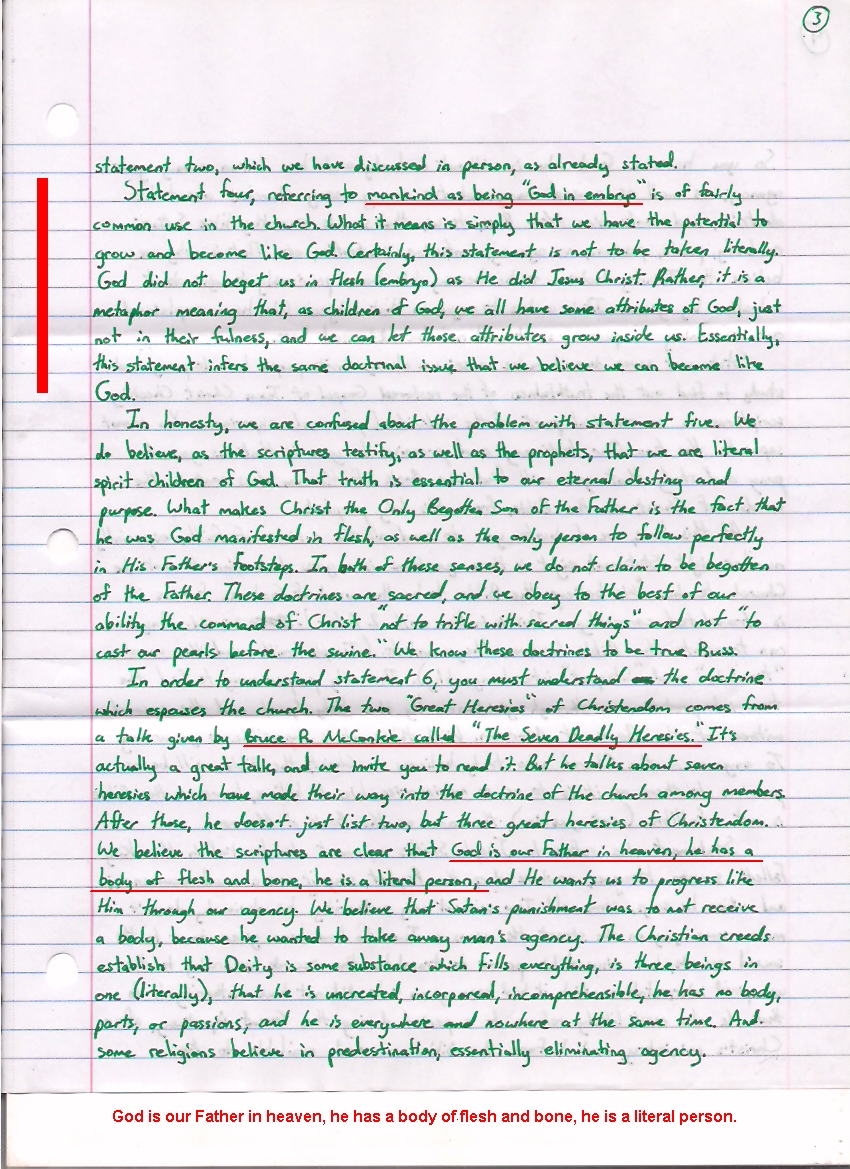 3
statement two, which we have discussed in person, as already stated.
Statement four, referring to mankind as being "God in embryo" is of fairly
common use in the church. What it means is simply that we have the potential to
grow and become like God. Certainly, this statement is not to be taken literally.
God did not beget us in flesh (embryo) as He did Jesus Christ. Rather, it is a
metaphor meaning that, as children of God, we all have some attributes of God, just
not in their fulness, and we can let those attributes grow inside us. Essentially,
this statement infers the same doctrinal issue that we believe we can become like
God.
In honesty, we are confused about the problem with statement five. We
do believe, as the scriptures testify, as well as the prophets, that we are literal
spirit children of God. That truth is essential to our eternal destiny and
purpose. What makes Christ the Only Begotten Son of the Father is the fact that
he was God manifested in flesh, as well as the only person to follow perfectly
in His Father's footsteps. In both of these senses, we do not claim to be begotten
of the Father. These doctrines are sacred, and we obey to the best of our
ability the command of Christ "not to trifle with sacred things" and not "to
cast our pearls before the swine." We know these doctrines to be true Russ.
In order to understand statement 6, you must understand the doctrine
which espouses the church. The two "Great Heresies" of Christendom comes from
a talk given by Bruce R. McConkie called "The Seven Deadly Heresies." It's
actually a great talk, and we invite you to read it. But he talks about seven
heresies which have made their way into the doctrine of the church among members.
After those, he doesn't just list two, but three great heresies of Christendom.
We believe the scriptures are clear that God is our Father in heaven, he has a
body of flesh and bone, he is a literal person, and He wants us to progress like
Him through our agency. We believe that Satan's punishment was to not receive
a body, because he wanted to take away man's agency. The Christian creeds
establish that Deity is some substance which fills everything, is three beings in
one (literally), that he is uncreated, incorporeal, incomprehensible, he has no body,
parts, or passions, and he is everywhere and nowhere at the same time. And
some religions believe in predestination, essentially eliminating agency.
God is our Father in heaven, he has a body of flesh and bone, he is a literal person.